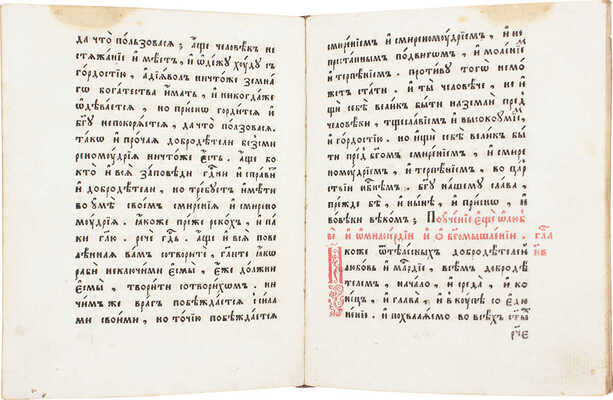 да что̀ по́льзовася; а҆́ще человѣ́къ не
стѧжа́нїе и҆ мѣ́сть, и҆ ѻ҆де́жꙋ хꙋ́дꙋ съ
го́рдостїю, а҆ дїѧ́волъ ничто́же земна́
гѡ бога́тества и҆́мать, и҆ никогда́же
ѡ҆дѣва́етсѧ, но при́снѡ горди́тсѧ и҆
бг҃ꙋ непокорѧ́етсѧ, да что̀ по́лзовасѧ.
та́кѡ и҆ про́чаѧ добродѣ́тели беꙁсми
реномꙋ́дрїѧ ничто́же є҆́сть. а҆́ще бо
кто̀ и҆ всѧ̀ за́повѣди гдⷭ҇ни и҆ спра́ви
и҆ добродѣ́тели, но тре́бꙋетъ и҆мѣ́ти
во ᲂу҆мѣ̀ свое́мъ смире́нїѧ и҆ смирено
мꙋ́дрїѧ. ꙗ҆́коже пре́же реко́хъ, и҆ па́
ки гл҃ю. речѐ гдⷭ҇ь. а҆́ще и҆ всѧ̀ пове
лѣ́ннаѧ ва́мъ сотвори́те, гл҃ите ꙗ҆́кѡ
раби̑ неключи́ми є҆смы̀, є҆́же до́лжни
є҆смы̀, твори́ти сотвори́хомъ. ни
чи́мъ же вра́гъ побѣжда́етсѧ и҆ си́ла
ми свои́ми, но то́чїю побѣжда́етсѧ
смире́нїемъ и҆ смиреномꙋ́дрїемъ, и҆ не
преста́ннымъ по́двигомъ, и҆ моле́нїе
и҆ терпѣ́нїемъ. проти́вꙋ тогѡ̀ немо́
жетъ ста́ти. и҆ ты̀ человѣ́че, не и҆
щѝ себѣ̀ вели́къ бы́ти на землѝ пред
человѣ́ки, тщесла́вїемъ и҆ высокоꙋ́мїе,
и҆ го́рдостїю. но и҆щѝ себѣ̀ вели́къ бы
ти пред бг҃омъ смире́нїемъ, и҆ смире
номꙋ́дрїемъ, и҆ терпѣ́нїемъ, во ца́р
ствїи нбⷭ҇нѣмъ. бг҃ꙋ на́шемꙋ сла́ва,
пре́жде бѣ̀, и҆ ны́нѣ, и҆ при́снѡ, и҆
вовѣ́ки вѣко́мъ; Поꙋче́нїе є҆щѐ ѡ҆ любв
ѝ и҆ ѡ҆ милосе́рдїи и҆ ѡ҆ бг҃омышле́нїи. гла
І҆́коже ѿ тѣле́сныхъ добродѣ́телей
любо́вь и҆ млⷭ҇рдїе, всѣ́мъ добродѣ́
телемъ, нача́ло, и҆ среда̀, и҆ ко
не́цъ, и҆ глава̀, и҆ вкꙋ́пѣ со є҆ди
не́нїи. и҆ похвалѧ́емо во всѣ́хъ ст҃ы